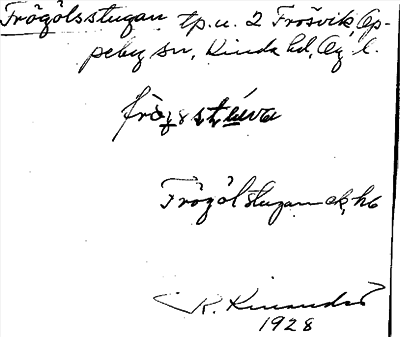 Frögölsstugan tp. u. 2 Frösvik, Op-
peby sn, Kinda hd, Ög l.
Frögölstugan ek, hb
R. Kinander
1928